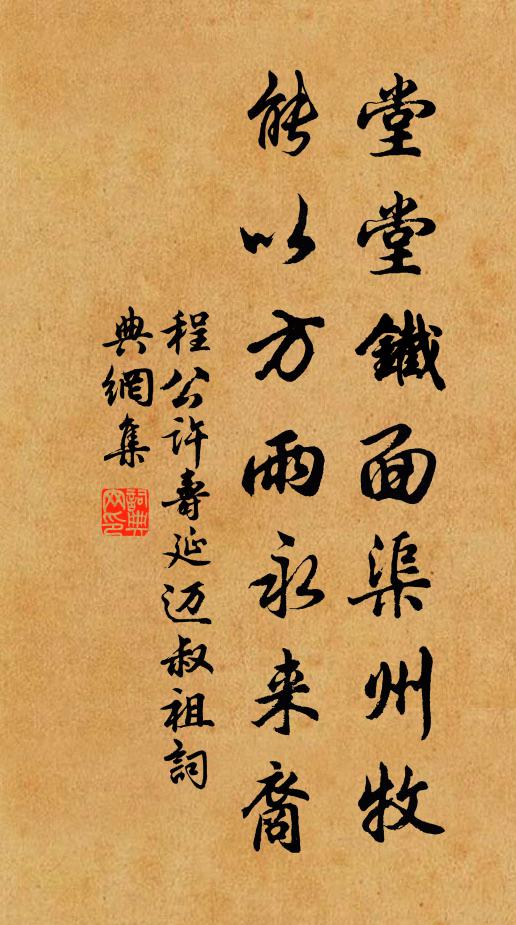 堂堂鐵面渠州牧
能以方雨永来裔
程公許壽延迈叔祖詞
典網集
詞典網印